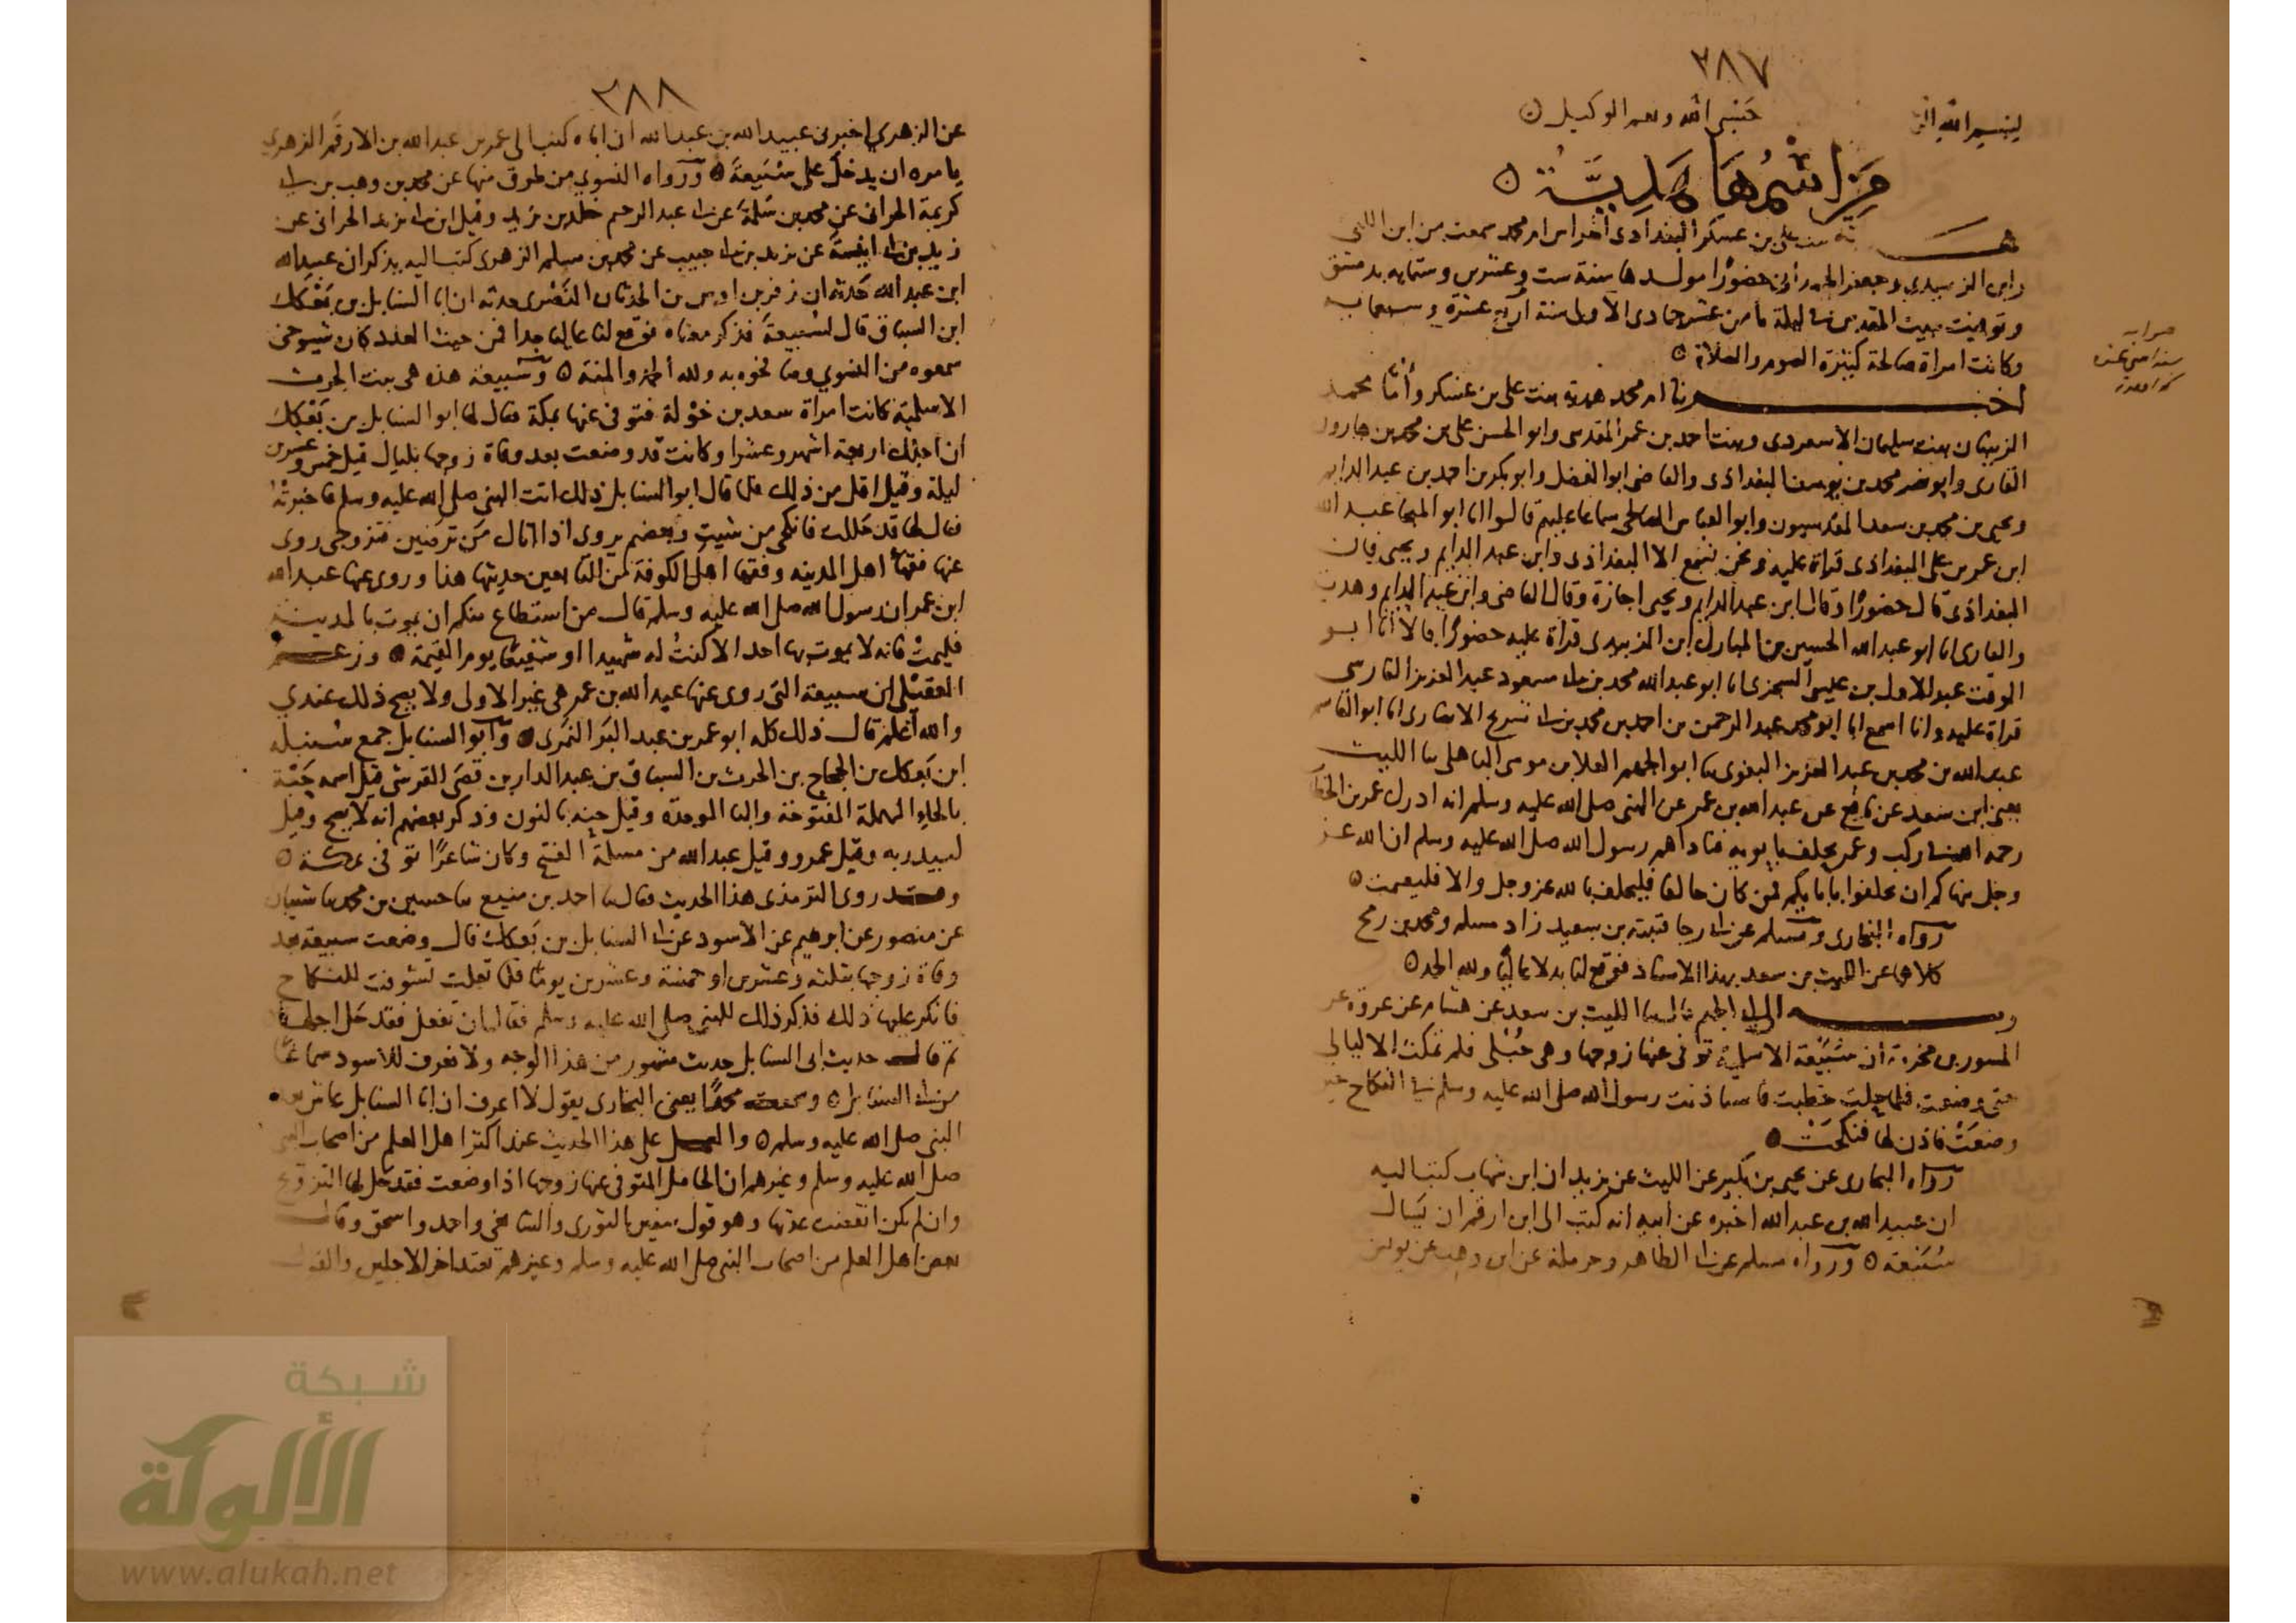 ٣٨٧
بسم الله الر
حسبي الله ونعم الوكيل ٥
من اسمها هدية ٥
هدية بنت علي بن عسكر البغدادي أخبرنا أم محمد سمعت من ابن اللتي
وابن الزبيدي وجعفر الهمداني حضورًا مولدها سنة ست وعشرين وستمايه بدمشق
وتوفيت ببيت المقدس في ليلة ثامن عشر جمادى الأول سنة أربع عشرة وسبعمايه
وكانت امراة صالحة كثيرة الصوم والصلاة ٥
صوابه
سنة اثنتي عشرة
أخبرتنا ام محمد هدية بنت علي بن عسكر وأمتا محمد
الزينبان بنت سليمان الاسعردي وبنت احمد بن عمر المقدسي وابو الحسن علي بن محمد بن هارون
القاري وابو نصر محمد بن يوسف البغدادي والقاضي ابو الفضل وابو بكر بن احمد بن عبد الدايم
ويحيى بن محمد بن سعد المقدسيون وابو العباس الصالحي سماعا عليهم قالوا انا ابو المنجا عبد الله
ابن عمر بن علي البغدادي قراة عليه ونحن نسمع الا البغدادي وابن عبد الدايم ويحيى فان
البغدادي قال حضورًا وقال ابن عبد الدايم ويحيى اجازة وقال القاضي وابن عبد الدايم وهدية
والقاري انا ابو عبد الله الحسين بن المبارك ابن الزبيدي قراة عليه حضورًا قالا أنا ابو
الوقت عبد الاول بن عيسى السجزي انا ابو عبد الله محمد بن ابي مسعود عبد العزيز الفارسي
قراة عليه وانا اسمع انا ابو محمد عبد الرحمن بن احمد بن محمد بن ابي شريح الانصاري انا ابو القاسم
عبد الله بن محمد بن عبد العزيز البغوي ثنا ابو الجهم العلا بن موسى الباهلي ثنا الليث
يعني ابن سعد عن نافع عن عبد الله بن عمر عن النبي صلى الله عليه وسلم انه ادرك عمر بن الخطا
رحمه الله في ركب وعمر يحلف بابويه فناداهم رسول الله صلى الله عليه وسلم ان الله عز
وجل ينهاكم ان تحلفوا بابايكم فمن كان حالفا فليحلف بالله عز وجل والا فليصمت ٥
رواه البخاري ومسلم عن ابي رجا قتيبة بن سعيد زاد مسلم ومحمد بن رمح
كلاهما عن الليث بن سعد بهذا الاسناد فوقع لنا بدلا عاليًا ولله الحمد ٥
وبه الى ابي الجهم قال ثنا الليث بن سعد عن هشام عن عروة عن
المسور بن مخرمة ان سُبَيعة الاسلمية توفي عنها زوجها وهي حُبْلى فلم تمكث الا ليالي
حتى وضعت فلما حلت خطبت فاستاذنت رسول الله صلى الله عليه وسلم في النكاح حين
وضعَتْ فاذن لها فنكحَتْ ٥
رواه البخاري عن يحيى بن بكير عن الليث عن يزيد ان ابن شهاب كتب اليه
ان عبيد الله بن عبد الله اخبره عن ابيه انه كتب الى ابن ارقم ان يسال
سُبَيْعة ٥ ورواه مسلم عن ابي الطاهر وحرملة عن ابن وهب عن يونس
٣٨٨
عن الزهري اخبرني عبيد الله بن عبد الله ان اباه كتب الى عمر بن عبد الله بن الارقم الزهري
يامره ان يدخل على سُبَيعة ٥ ورواه النسوي من طرق منها عن محمد بن وهب بن ابي
كريمة الحراني عن محمد بن سَلَمة عن ابي عبد الرحيم خالد بن يزيد وقيل ابن ابي يزيد الحراني عن
زيد بن ابي انيسة عن يزيد بن ابي حبيب عن محمد بن مسلم الزهري كتب اليه يذكر ان عبيد الله
ابن عبد الله حدثه ان زفر بن اوس بن الحدثان النصري حدثه ان ابا السنابل بن بعكك
ابن السباق قال لسُبيعة فذكر معناه فوقع لنا عاليا جدا فمن حيث العدد كان شيوخي
سمعوه من النسوي ومن نحوه به ولله الحمد والمنة ٥ وسُبيعة هذه هي بنت الحرث
الاسلمية كانت امراة سعد بن خولة فتوفي عنها بمكة فقال لها ابو السنابل بن بعكك
ان اجلك اربعة اشهر وعشرا وكانت قد وضعت بعد وفاة زوجها بليال قيل خمس وعشرين
ليلة وقيل اقل من ذلك فلما قال ابو السنابل ذلك اتت النبي صلى الله عليه وسلم فاخبرتْهُ
فقال لها قد حللت فانكحي من شيت وبعضهم يروي اذا اتاك من ترضين فتزوجي روى
عنها فقهاء اهل المدينة وفقها اهل الكوفة من التابعين حديثها هذا وروى عنها عبد الله
ابن عمر ان رسول الله صلى الله عليه وسلم قال من استطاع منكم ان يموت بالمدينة
فليمت فانه لا يموت بها احد الا كنتُ له شهيدا او شفيعًا يوم القيمة ٥ وزعم
العقيلي ان سبيعة التي روى عنها عبد الله بن عمر هي غير الاولى ولا يصح ذلك عندي
والله أعلم قال ذلك كله ابو عمر بن عبد البر النَّمَري ٥ وابو السنابل جمع سنبلة
ابن بعكك بن الحجاج بن الحرث بن السباق بن عبد الدار بن قصي القرشي قيل اسمه حَبّة
بالحاء المهملة المفتوحة والبا الموحدة وقيل حنه بالنون وذكر بعضهم انه لا يصح وقيل
لبيد ربه وقيل عمرو وقيل عبد الله من مسلمة الفتح وكان شاعرًا توفي بمكة ٥
وقد روى الترمذي هذا الحديث فقال ثنا احمد بن منيع ثنا حسين بن محمد ثنا شيبان
عن منصور عن ابرهيم عن الاسود عن ابي السنابل بن بعكك قال وضعت سبيعة بعد
وفاة زوجها بثلثة وعشرين او خمسة وعشرين يوما فلما تعلت تشوفت للنكاح
فانكر عليها ذلك فذكر ذلك للنبي صلى الله عليه وسلم فقال ان تفعل فقد حل اجلها
ثم قال حديث ابي السنابل حديث مشهور من هذا الوجه ولا نعرف للاسود سماعًا
من ابي السنابل ٥ وسمعت محمدًا يعني البخاري يقول لا اعرف ان ابا السنابل عاش بعد
النبي صلى الله عليه وسلم ٥ والعمل على هذا الحديث عند اكثر اهل العلم من اصحاب النبي
صلى الله عليه وسلم وغيرهم ان الحامل المتوفى عنها زوجها اذا وضعت فقد حَل لها التزويج
وان لم تكن انقضت عدتها وهو قول سفين الثوري والشافعي واحمد واسحق وقال
بعض اهل العلم من اصحاب النبي صلى الله عليه وسلم وغيرهم تعتد اخر الاجلين والقول
شبكة
الألوكة
www.alukah.net